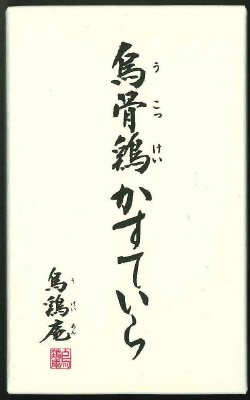 烏骨鶏かすていら
うこっけい
烏鶏庵
うけいあん